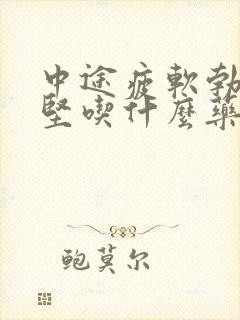 中途疲軟勃
堅喫什麼藥
鲍莫尔